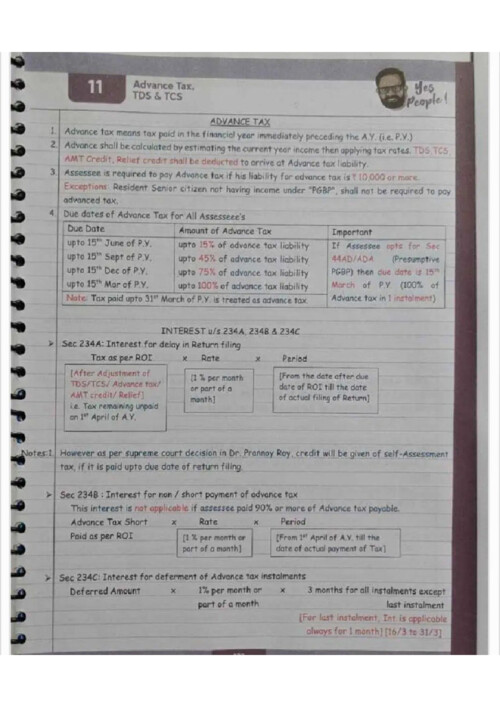 11
Advance Tax,
TDS & TCS
Yes
People!
ADVANCE TAX
1. Advance tax means tax paid in the financial year immediately preceding the A.Y. (i.e. P.Y.)
2. Advance shall be calculated by estimating the current year income then applying tax rates. TDS, TCS
AMT Credit, Relief credit shall be deducted to arrive at Advance tax liability.
3. Assessee is required to pay Advance tax if his liability for advance tax is ₹ 10,000 or more.
Exceptions: Resident Senior citizen not having income under "PGBP", shall not be required to pay
advanced tax.
4. Due dates of Advance Tax for All Assessee's
Due Date Amount of Advance Tax Important
upto 15th June of P.Y. upto 15% of advance tax liability If Assessee opts for Sec
upto 15th Sept of P.Y. upto 45% of advance tax liability 44AD/ADA (Presumptive
upto 15th Dec of P.Y. upto 75% of advance tax liability PGBP) then due date is 15th
upto 15th Mar of P.Y. upto 100% of advance tax liability March of P.Y (100% of
Note: Tax paid upto 31st March of P.Y. is treated as advance tax. Advance tax in 1 instalment)
INTEREST u/s 234A, 234B & 234C
➤ Sec 234A: Interest for delay in Return filing
Tax as per ROI x Rate x Period
[After Adjustment of
TDS/TCS/ Advance tax/
AMT credit/ Relief]
i.e. Tax remaining unpaid
on 1st April of A.Y.
[1 % per month
or part of a
month]
[From the date after due
date of ROI till the date
of actual filing of Return]
Notes:1. However as per supreme court decision in Dr. Prannoy Roy, credit will be given of self-Assessment
tax, if it is paid upto due date of return filing.
➤ Sec 234B : Interest for non / short payment of advance tax
This interest is not applicable if assessee paid 90% or more of Advance tax payable.
Advance Tax Short x Rate x Period
Paid as per ROI [1 % per month or [From 1st April of A.Y. till the
part of a month] date of actual payment of Tax]
➤ Sec 234C: Interest for deferment of Advance tax instalments
Deferred Amount x 1% per month or x 3 months for all instalments except
part of a month last instalment
[For last instalment, Int is applicable
always for 1 month] [16/3 to 31/3]